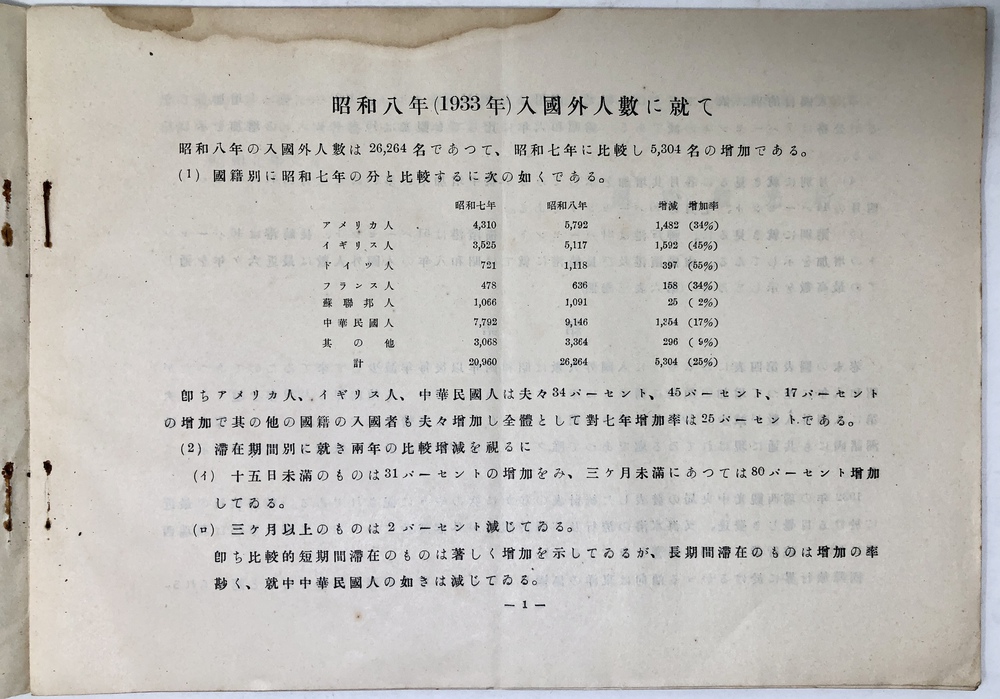 昭和八年(1933年)入國外人數に就て
昭和八年の入國外人數は26,264名であつて、昭和七年に比較し5,304名の增加である。
(1) 國籍別に昭和七年の分と比較するに次の如くである。
昭和七年 昭和八年 增減 增加率
アメリカ人 4,310 5,792 1,482 (34%)
イギリス人 3,525 5,117 1,592 (45%)
ドイツ人 721 1,118 397 (55%)
フランス人 478 636 158 (34%)
蘇聯邦人 1,066 1,091 25 (2%)
中華民國人 7,792 9,146 1,354 (17%)
其の他 3,068 3,364 296 (9%)
計 20,960 26,264 5,304 (25%)
卽ちアメリカ人、イギリス人、中華民國人は夫々34パーセント、45パーセント、17パーセント
の增加で其の他の國籍の入國者も夫々增加し全體として對七年增加率は25パーセントである。
(2) 滯在期間別に就き兩年の比較增減を視るに
(イ) 十五日未滿のものは31パーセントの增加をみ、三ケ月未滿にあつては80パーセント增加
してゐる。
(ロ) 三ケ月以上のものは2パーセント減じてゐる。
卽ち比較的短期間滯在のものは著しく增加を示してゐるが、長期間滯在のものは增加の率
尠く、就中中華民國人の如きは減じてゐる。
— 1 —